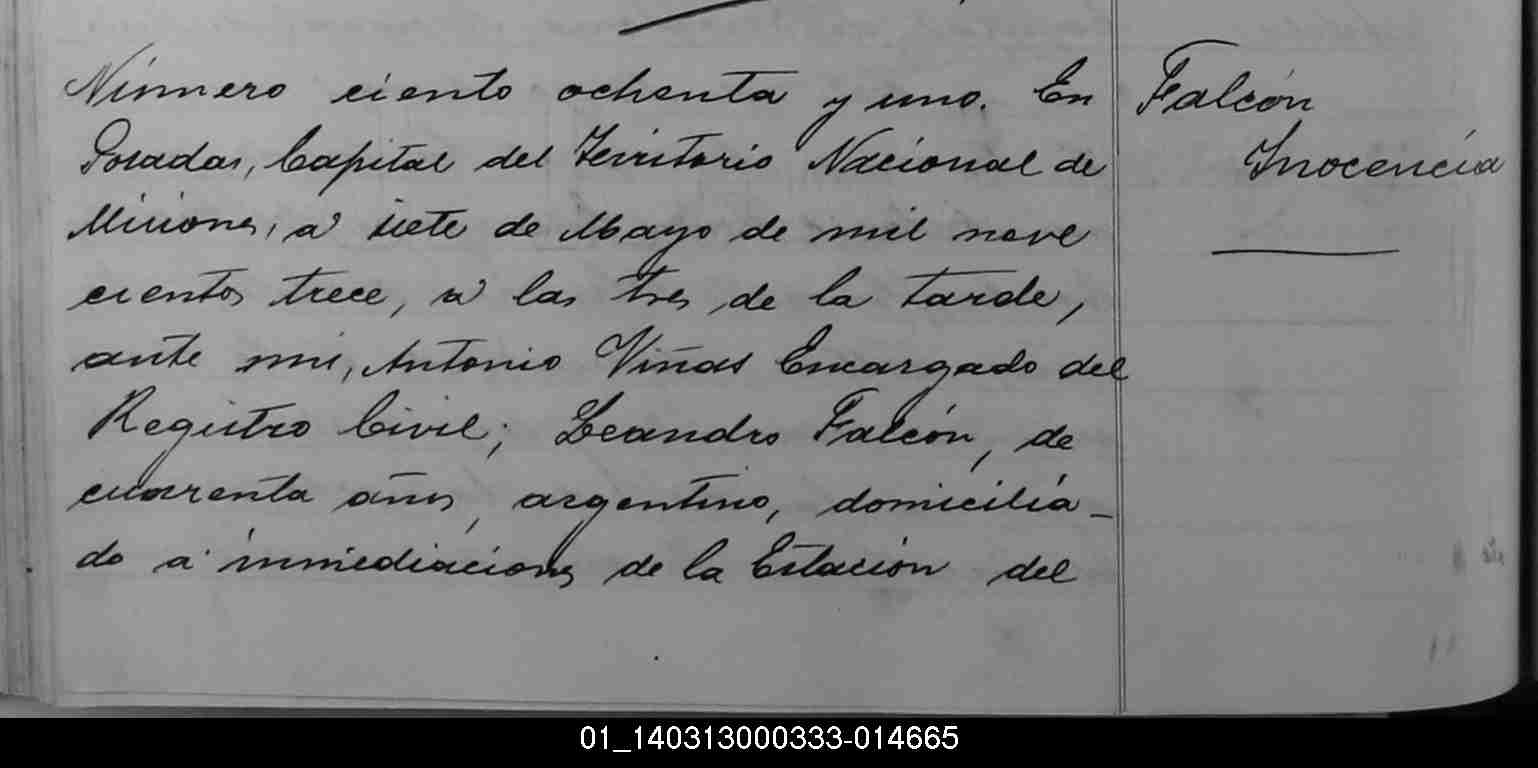 Número ciento ochenta y uno. En
Posadas, Capital del Territorio Nacional de
Misiones, a siete de Mayo de mil nove
cientos trece, a las tres de la tarde,
ante mi, Antonio Viñas Encargado del
Registro Civil; Leandro Falcón, de
cuarenta años, argentino, domicilia-
do a inmediaciones de la Estación del
Falcón
Inocencia
01_140313000333-014665